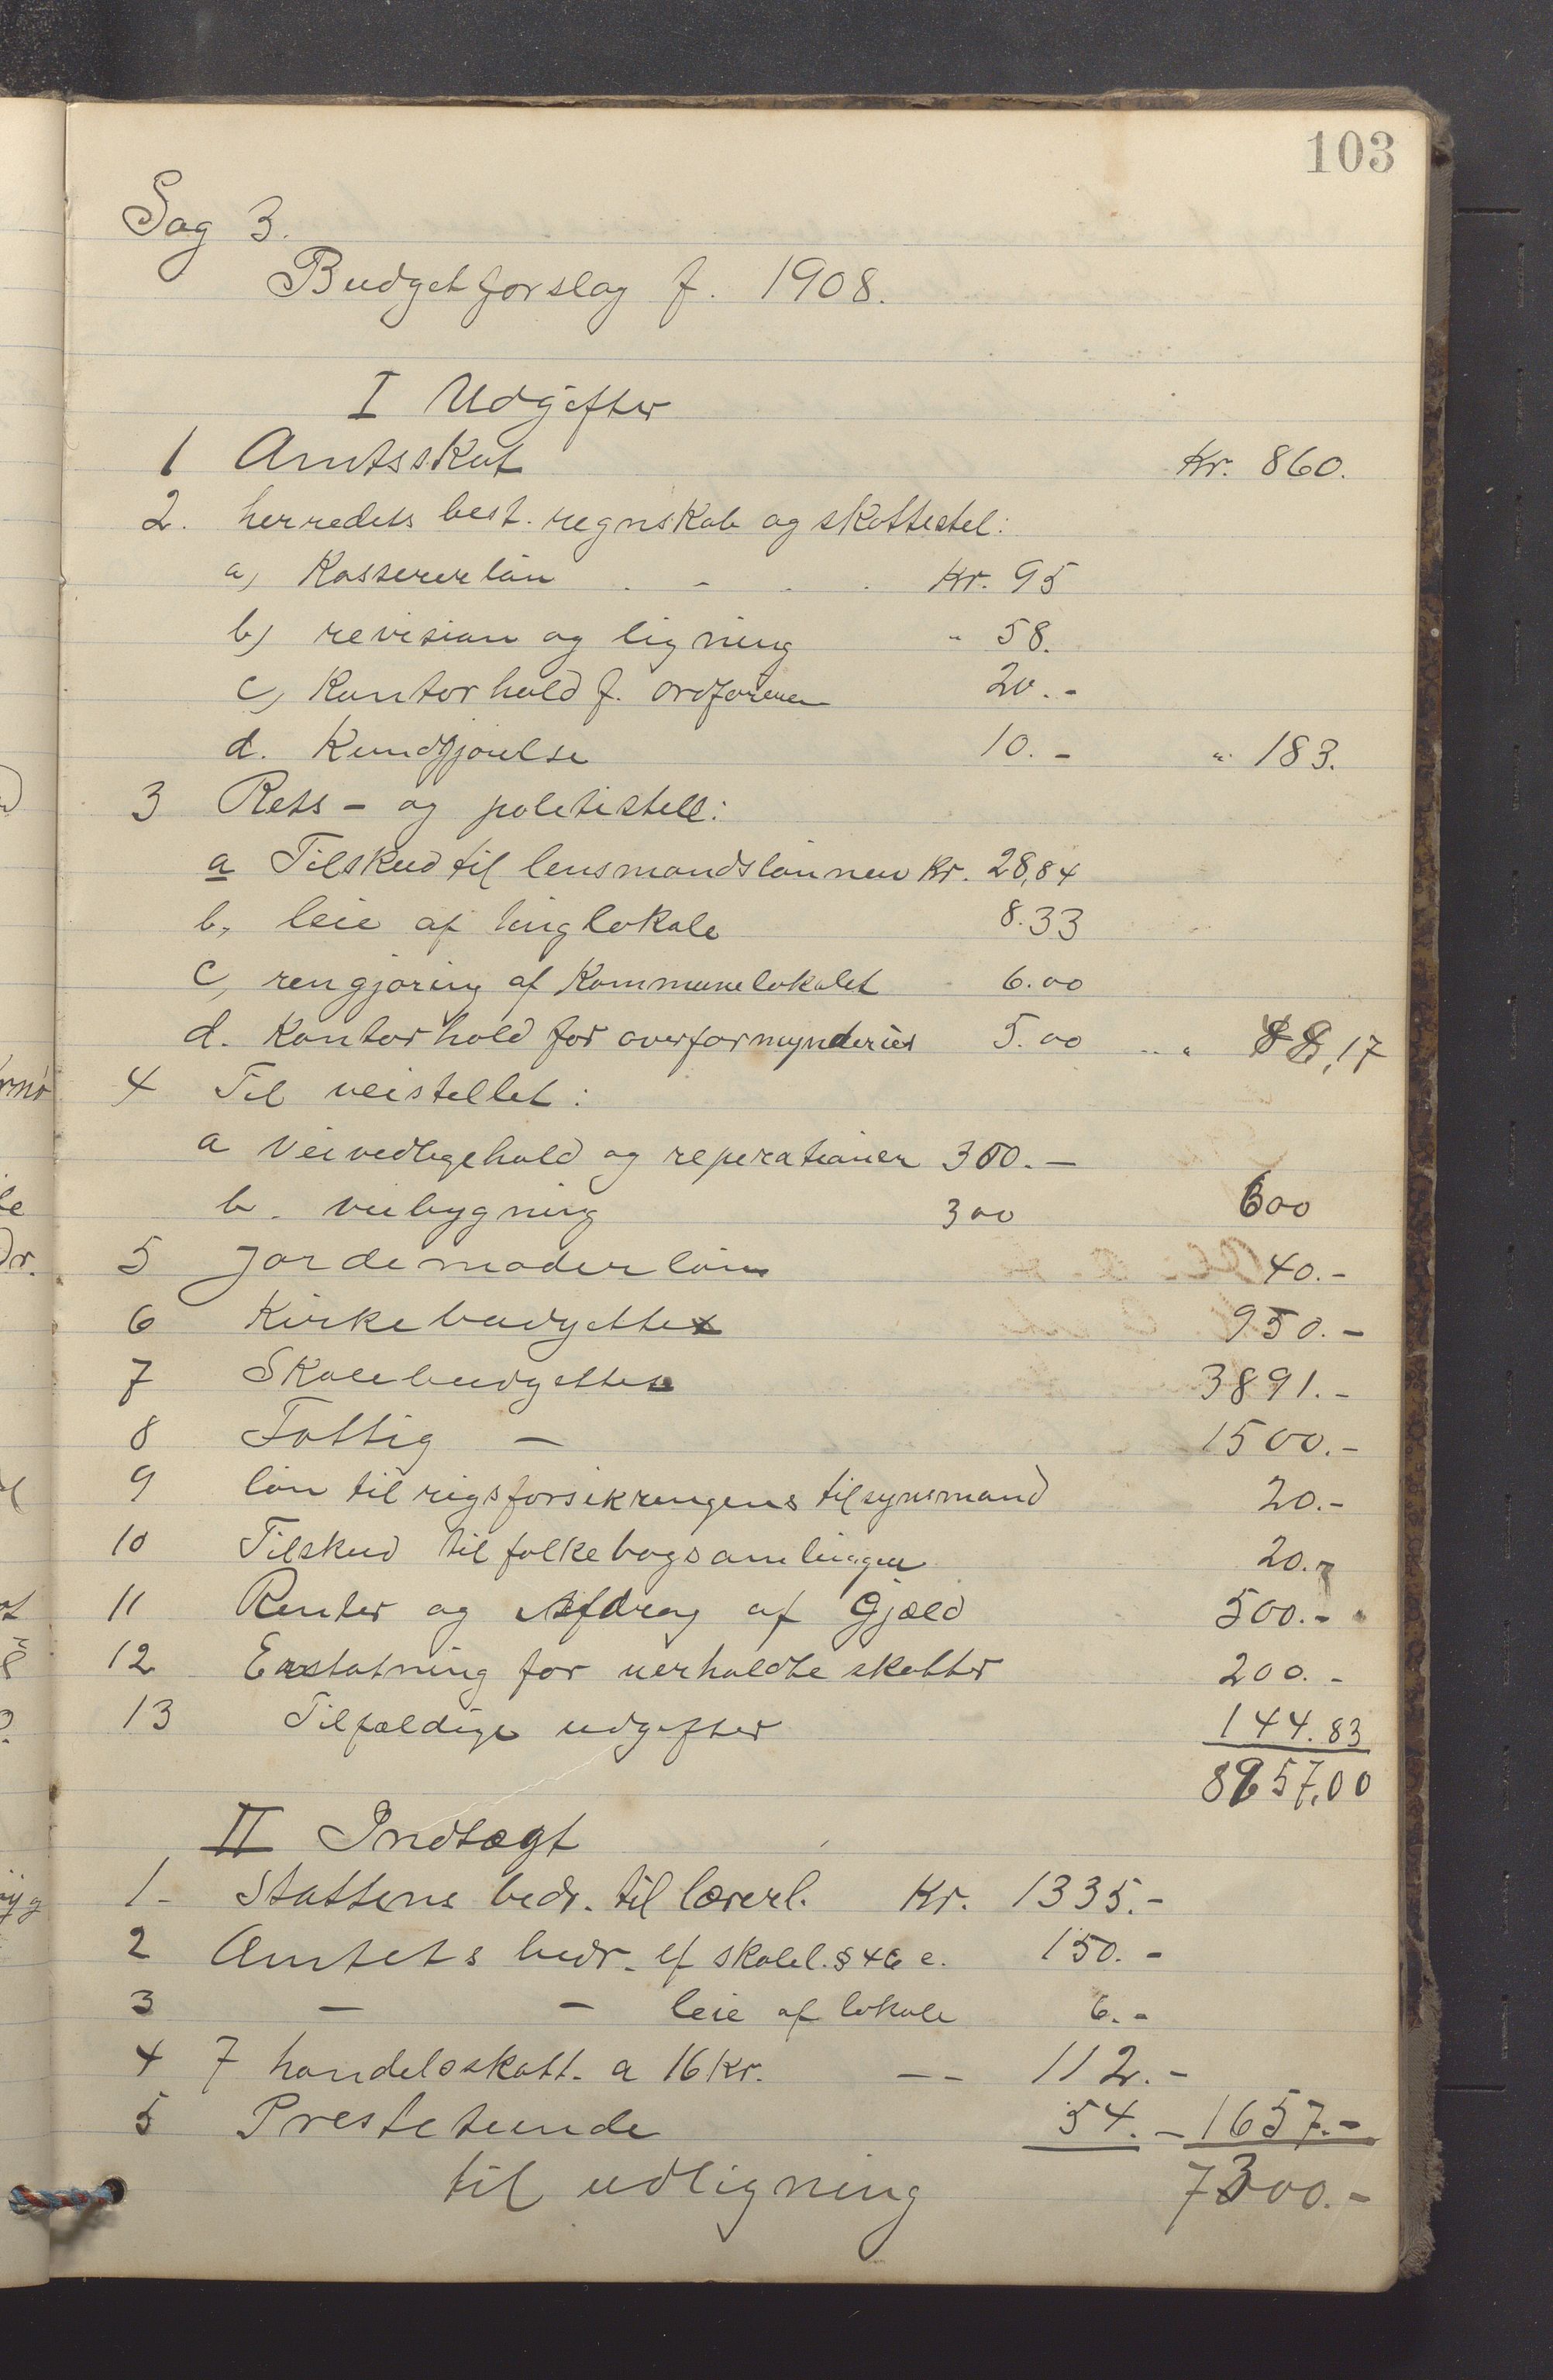 103
Sag 3.
Budgetforslag f. 1908.
I Udgifter
1 Amtsskat Kr. 860.
2. herredets best. regnskab og skattestel:
a) Kassererløn . - . . Kr. 95
b) revision og ligning " 58.
c) Kontorhold f. ordføreren 20.-
d. Kundgjørelse 10.- " 183.
3 Rets- og politistell:
a Tilskud til lensmandslønnen Kr. 28,84
b, leie af tinglokale 8.33
c, rengjøring af Kommunelokalet 6.00
d. Kontorhold for overformynderiet 5.00 " 48,17
4 Til veistellet:
a Veivedligehold og reperationer 300.-
b. veibygning 300 600
5 Jordemoderløn 40.-
6 Kirkebudgettet 950.-
7 Skolebudgettet 3891.-
8 Fattig - 1500.-
9 løn til rigsforsikringens tilsynsmand 20.-
10 Tilskud til folkebogsamlingen 20.-
11 Renter og Afdrag af Gjæld 500.-
12 Erstatning for uerholdte skatter 200.-
13 Tilfældige udgifter 144.83
8957,00
II Indtægt
1- Stattens bedr. til lærerl. Kr. 1335.-
2 Amtets bedr. ef skolel. § 46 c. 150.-
3 - - leie af lokale 6.-
4 7 handelsskatt. a 16 Kr. -- 112.-
5 Prestetiende 54.- 1657.-
til udligning 7300.-